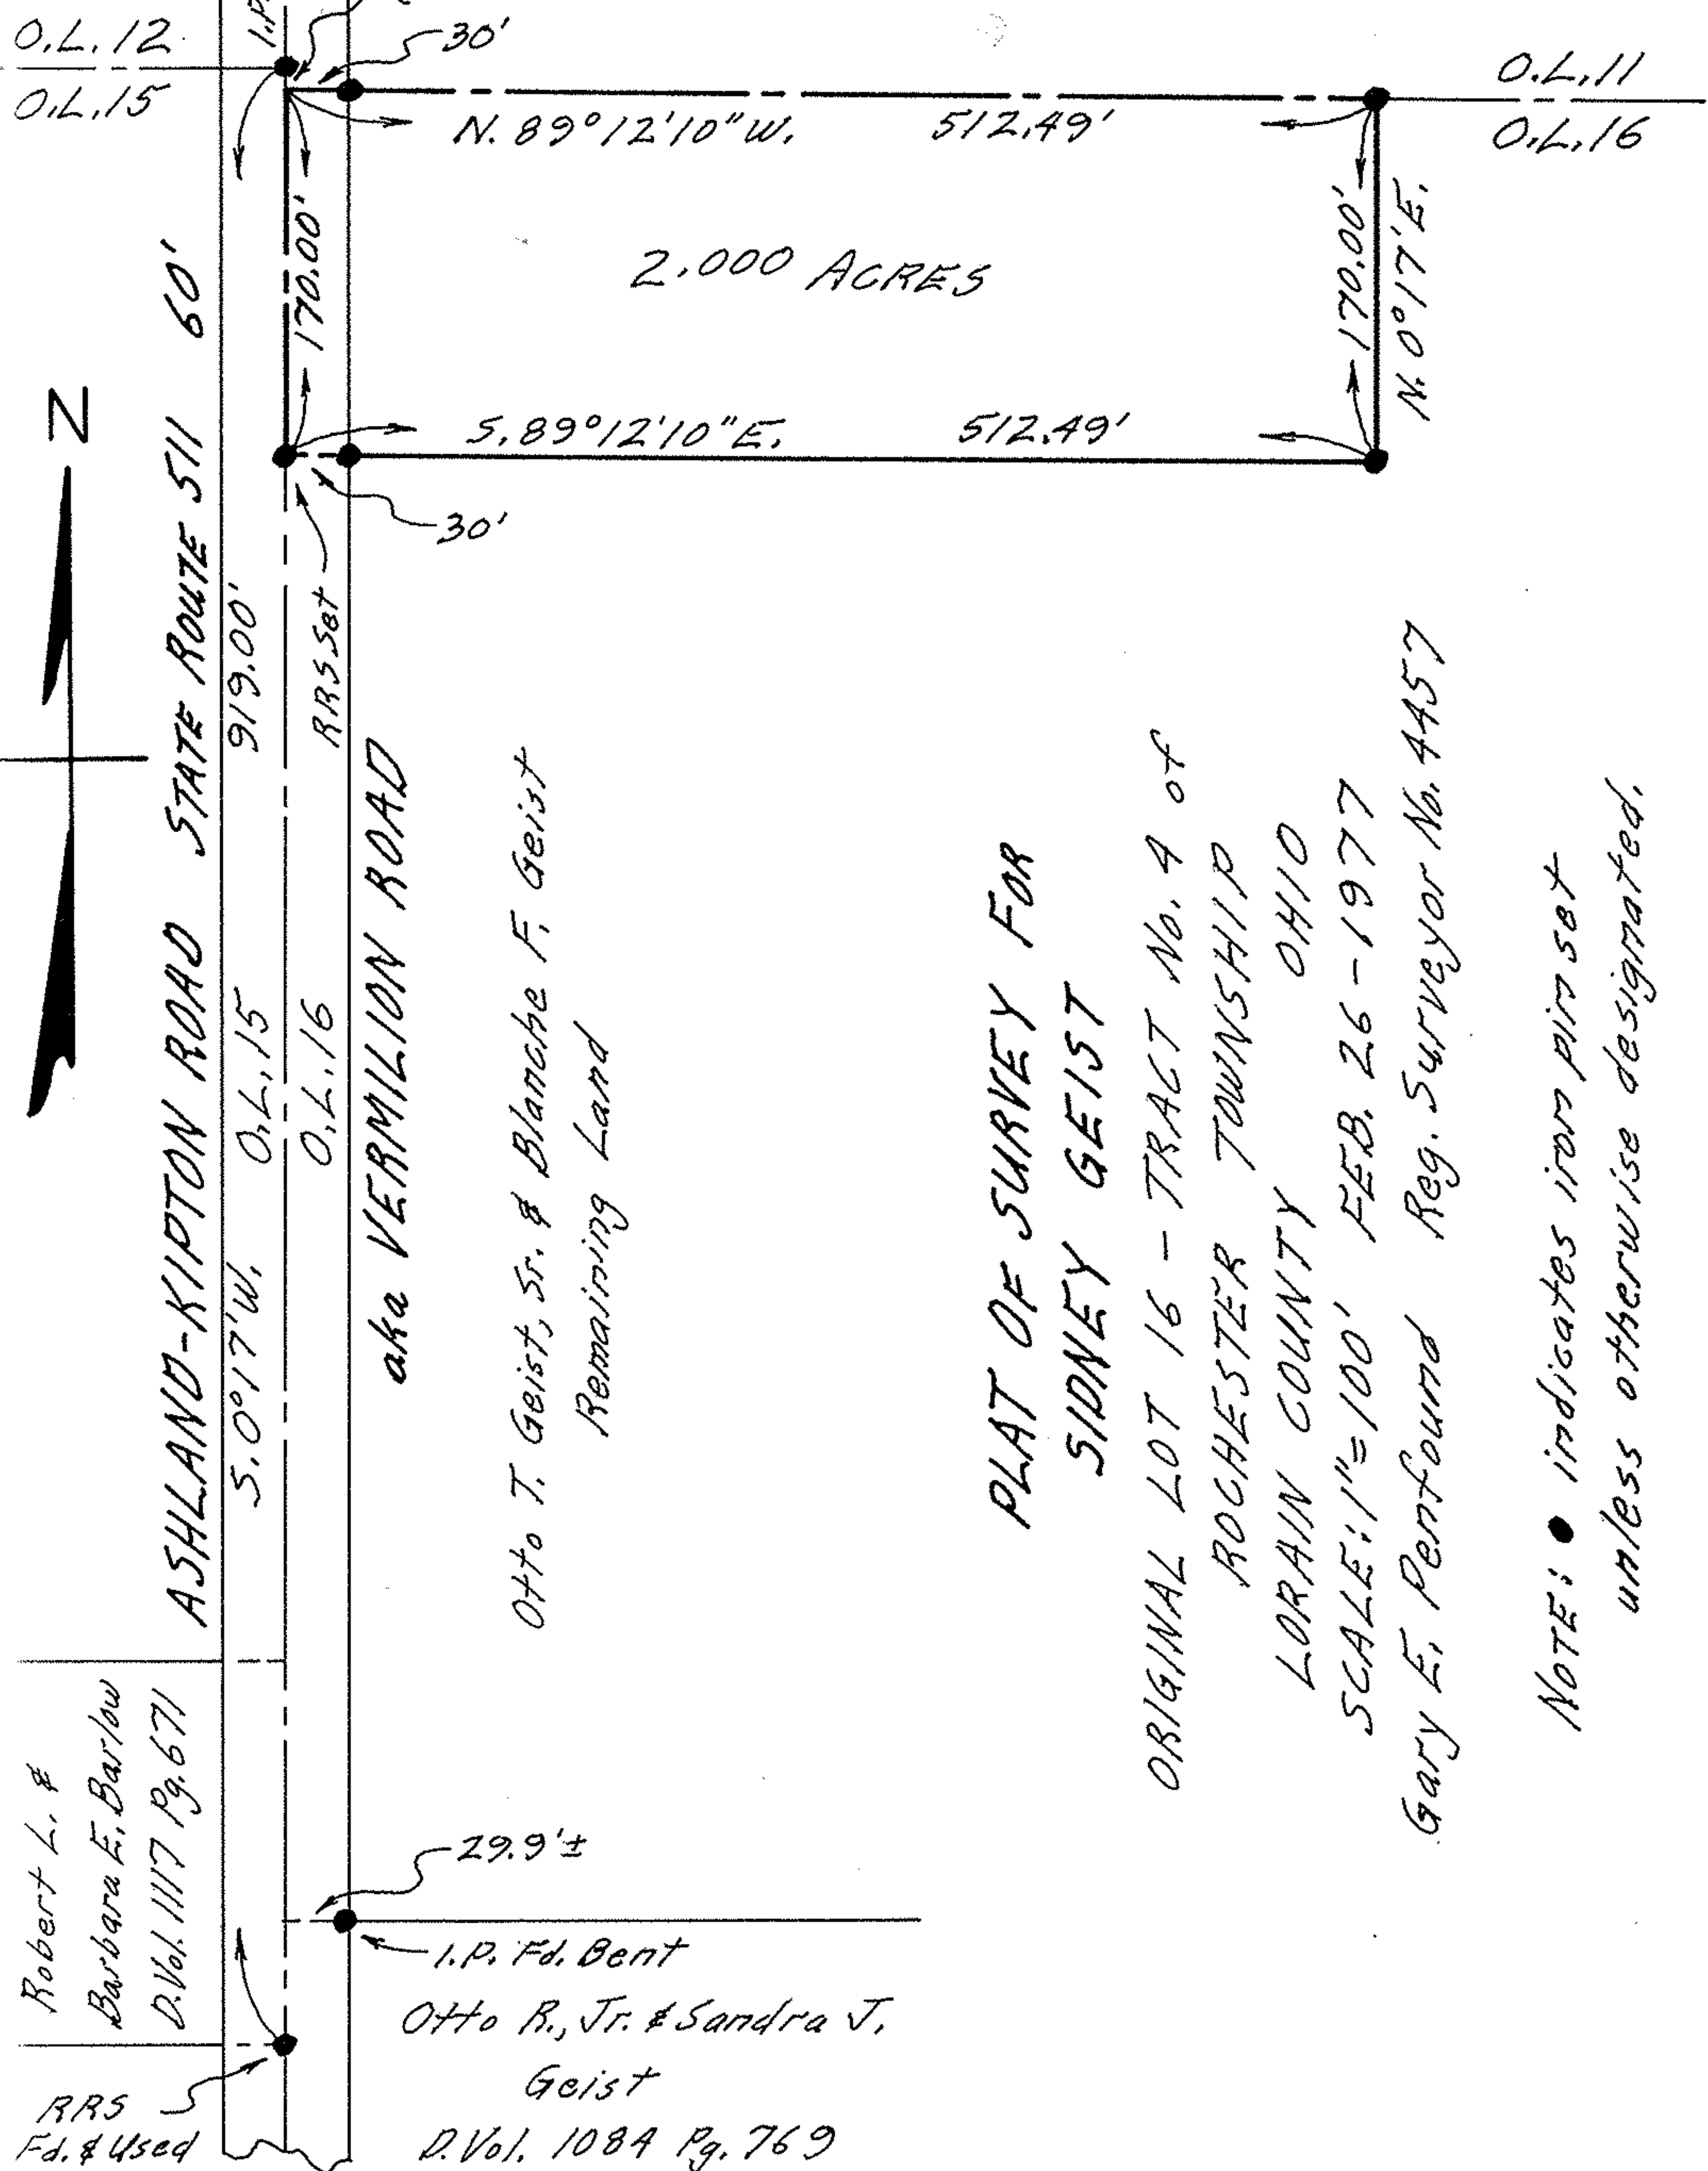 O.L. 12
O.L. 15
I.P.
30'
O.L. 11
O.L. 16
N. 89°12'10" W. 512.49'
170.00'
2.000 ACRES
170.00'
N. 0°17' E.
S. 89°12'10" E. 512.49'
30'
RRS Set
N
ASHLAND-KIPTON ROAD STATE ROUTE 511 60'
S. 0°17' W. O.L. 15 919.00'
O.L. 16
aka VERMILION ROAD
Otto T. Geist, Sr. & Blanche F. Geist
Remaining Land
PLAT OF SURVEY FOR
SIDNEY GEIST
ORIGINAL LOT 16 - TRACT No. 4 of
ROCHESTER TOWNSHIP
LORAIN COUNTY OHIO
SCALE: 1"=100' FEB. 26-1977
Gary E. Penfound Reg. Surveyor No. 4457
NOTE: ● indicates iron pin set
unless otherwise designated.
Robert L. &
Barbara E. Barlow
D.Vol. 1117 Pg. 671
29.9'±
I.P. Fd. Bent
Otto R., Jr. & Sandra J.
Geist
D.Vol. 1084 Pg. 769
RRS
Fd. & Used